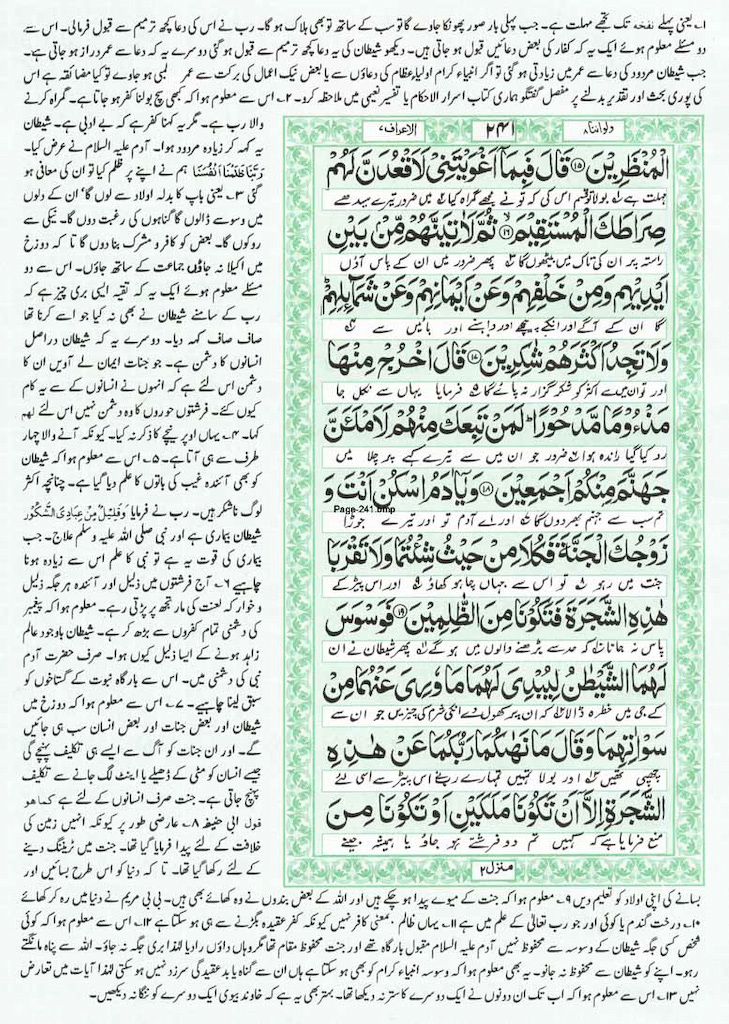 ۱۔ یعنی پہلے نفخہ تک تجھے مہلت ہے۔ جب پہلی بار صور پھونکا جاوے گا تو سب کے ساتھ تو بھی ہلاک ہو گا۔ رب نے اس کی دعا کچھ ترمیم سے قبول فرمالی۔ اس سے
دو مسئلے معلوم ہوئے ایک یہ کہ کفار کی بعض دعائیں قبول ہو جاتی ہیں۔ دیکھو شیطان کی یہ دعا کچھ ترمیم سے قبول ہو گئی دوسرے یہ کہ دعا سے عمر دراز ہو جاتی ہے۔
جب شیطان مردود کی دعا سے عمر میں زیادتی ہو گئی تو اگر انبیاء کرام اولیاء عظام کی دعاؤں سے یا بعض نیک اعمال کی برکت سے عمر لمبی ہو جاوے تو کیا مضائقہ ہے اس
کی پوری بحث اور تقدیر بدلنے پر مفصل گفتگو ہماری کتاب اسرار الاحکام یا تفسیر نعیمی میں ملاحظہ کرو۔ ۲۔ اس سے معلوم ہوا کہ کبھی سچ بولنا کفر ہو جاتا ہے۔ گمراہ کرنے
ولو اننا ۸
۲۴۱
الاعراف ۷
الْمُنْظَرِیْنَ ۱۵ قَالَ فَبِمَاۤ اَغْوَیْتَنِیْ لَاَقْعُدَنَّ لَهُمْ
مہلت ہے بولا تو قسم اس کی کہ تو نے مجھے گمراہ کیا میں ضرور تیرے سیدھے
صِرَاطَكَ الْمُسْتَقِیْمَ ۱۶ ثُمَّ لَاٰتِیَنَّهُمْ مِّنْۢ بَیْنِ
راستہ پر ان کی تاک میں بیٹھوں گا پھر ضرور میں ان کے پاس آؤں
اَیْدِیْهِمْ وَمِنْ خَلْفِهِمْ وَعَنْ اَیْمَانِهِمْ وَعَنْ شَمَآىِٕلِهِمْ
گا ان کے آگے اور انکے پیچھے اور داہنے اور بائیں سے
وَلَا تَجِدُ اَكْثَرَهُمْ شٰكِرِیْنَ ۱۷ قَالَ اخْرُجْ مِنْهَا
اور تو ان میں سے اکثر کو شکر گزار نہ پائے گا فرمایا یہاں سے نکل جا
مَذْءُوْمًا مَّدْحُوْرًا لَمَنْ تَبِعَكَ مِنْهُمْ لَاَمْلَئَنَّ
رد کیا گیا راندہ ہوا ضرور جو ان میں سے تیرے کہے پر چلا میں
جَهَنَّمَ مِنْكُمْ اَجْمَعِیْنَ ۱۸ وَیٰۤاٰدَمُ اسْكُنْ اَنْتَ وَ
Page-241.bmp
تم سب سے جہنم بھر دوں گا اور اے آدم تو اور تیرے جوڑا
زَوْجُكَ الْجَنَّةَ فَكُلَا مِنْ حَیْثُ شِئْتُمَا وَلَا تَقْرَبَا
جنت میں رہو تو اس سے جہاں چاہو کھاؤ اور اس پیڑ کے
هٰذِهِ الشَّجَرَةَ فَتَكُوْنَا مِنَ الظّٰلِمِیْنَ ۱۹ فَوَسْوَسَ
پاس نہ جانا کہ حد سے بڑھنے والوں میں ہو گے پھر شیطان نے ان
لَهُمَا الشَّیْطٰنُ لِیُبْدِیَ لَهُمَا مَا وٗرِیَ عَنْهُمَا مِنْ
کے جی میں خطرہ ڈالا کہ ان پر کھول دے انکی شرم کی چیزیں جو ان سے
سَوْاٰتِهِمَا وَقَالَ مَا نَهٰىكُمَا رَبُّكُمَا عَنْ هٰذِهِ
چھپی تھیں اور بولا تمہیں تمہارے رب نے اس پیڑ سے اسی لئے
الشَّجَرَةِ اِلَّاۤ اَنْ تَكُوْنَا مَلَكَیْنِ اَوْ تَكُوْنَا مِنَ
منع فرمایا ہے کہ کہیں تم دو فرشتے ہو جاؤ یا ہمیشہ جینے
منزل ۲
والا رب ہے۔ مگر یہ کہنا کفر ہے کہ بے ادبی ہے۔ شیطان
یہ کہہ کر زیادہ مردود ہوا۔ آدم علیہ السلام نے عرض کیا۔
رَبَّنَا ظَلَمْنَا اَنْفُسَنَا ہم نے اپنے پر ظلم کیا تو ان کی معافی ہو
گئی ۳۔ یعنی باپ کا بدلہ اولاد سے لوں گا۔ ان کے دلوں
میں وسوسے ڈالوں گا گناہوں کی رغبت دوں گا۔ نیکی سے
روکوں گا۔ بعض کو کافر و مشرک بنا دوں گا تا کہ دوزخ
میں اکیلا نہ جاؤں جماعت کے ساتھ جاؤں۔ اس سے دو
مسئلے معلوم ہوئے ایک یہ کہ تقیہ ایسی بری چیز ہے کہ
رب کے سامنے شیطان نے بھی نہ کیا جو اسے کرنا تھا
صاف صاف کہہ دیا۔ دوسرے یہ کہ شیطان دراصل
انسانوں کا دشمن ہے۔ جو جنات ایمان لے آویں ان کا
دشمن اس لئے ہے کہ انہوں نے انسانوں کے سے یہ کام
کیوں کئے۔ فرشتوں حوروں کا وہ دشمن نہیں اس لئے لھم
کہا۔ ۴۔ یہاں اوپر نیچے کا ذکر نہ کیا۔ کیونکہ آنے والا چہار
طرف سے ہی آتا ہے۔ ۵۔ اس سے معلوم ہوا کہ شیطان
کو بھی آئندہ غیب کی باتوں کا علم دیا گیا ہے۔ چنانچہ اکثر
لوگ ناشکر ہیں۔ رب نے فرمایا وَقَلِیْلٌ مِّنْ عِبَادِیَ الشَّكُوْرُ
شیطان بیماری ہے اور نبی صلی اللہ علیہ وسلم علاج۔ جب
بیماری کی قوت یہ ہے تو نبی کا علم اس سے زیادہ ہونا
چاہیے ۶۔ آج فرشتوں میں ذلیل اور آئندہ ہر جگہ ذلیل
و خوار کہ لعنت کی مار تجھ پر پڑتی رہے۔ معلوم ہوا کہ پیغمبر
کی دشمنی تمام کفروں سے بڑھ کر ہے۔ شیطان باوجود عالم
زاہد ہونے کے ایسا ذلیل کیوں ہوا۔ صرف حضرت آدم
نبی کی دشمنی میں۔ اس سے بارگاہ نبوت کے گستاخوں کو
سبق لینا چاہیے۔ ۷۔ اس سے معلوم ہوا کہ دوزخ میں
شیطان اور بعض جنات اور بعض انسان سب ہی جائیں
گے۔ اور ان جنات کو آگ سے ایسے ہی تکلیف پہنچے گی
جیسے انسان کو مٹی کے ڈھیلے یا اینٹ لگ جانے سے تکلیف
پہنچ جاتی ہے۔ جنت صرف انسانوں کے لئے ہے کما ھو
قول ابی حنیفہ ۸۔ عارضی طور پر کیونکہ انہیں زمین کی
خلافت کے لئے پیدا فرمایا گیا تھا۔ جنت میں ٹریننگ دینے
کے لئے رکھا گیا تھا۔ تا کہ دنیا کو اس طرح بسائیں اور
بسانے کی اپنی اولاد کو تعلیم دیں ۹۔ معلوم ہوا کہ جنت کے میوے پیدا ہو چکے ہیں اور اللہ کے بعض بندوں نے وہ کھائے بھی ہیں۔ بی بی مریم نے دنیا میں رہ کر کھائے
۱۰۔ درخت گندم یا کوئی اور جو رب تعالیٰ کے علم میں ہے ۱۱۔ یہاں ظالم، بمعنی کافر نہیں کیونکہ کفر عقیدہ بگڑنے سے ہی ہو سکتا ہے ۱۲۔ اس سے معلوم ہوا کہ کوئی
شخص کسی جگہ شیطان کے وسوسہ سے محفوظ نہیں آدم علیہ السلام مقبول بارگاہ تھے اور جنت محفوظ مقام تھا مگر وہاں داؤں مار دیا لہٰذا بری جگہ نہ جاؤ۔ اللہ سے پناہ مانگتے
رہو۔ اپنے کو شیطان سے محفوظ نہ جانو۔ یہ بھی معلوم ہوا کہ وسوسہ انبیاء کرام کو بھی ہو سکتا ہے ہاں ان سے گناہ یا بد عقیدگی سرزد نہیں ہو سکتی لہٰذا آیات میں تعارض
نہیں ۱۳۔ اس سے معلوم ہوا کہ اب تک ان دونوں نے ایک دوسرے کا ستر نہ دیکھا تھا۔ بہتر بھی یہ ہے کہ خاوند بیوی ایک دوسرے کو ننگا نہ دیکھیں۔